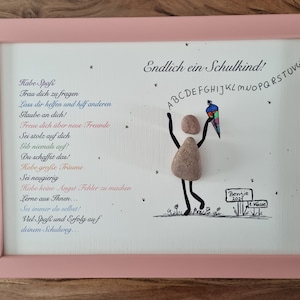 Endlich ein Schulkind!
ABCDEFGHIJKLMNOPQRSTUVW
Habe Spaß
Trau dich zu fragen
Lass dir helfen und hilf anderen
Glaube an dich!
Freue dich über neue Freunde
Sei stolz auf dich
Gib niemals auf!
Du schaffst das!
Habe große Träume
Sei neugierig
Habe keine Angst Fehler zu machen
Lerne aus Ihnen...
Sei immer du selbst!
Viel Spaß und Erfolg auf
deinem Schulweg...
2021
1. Klasse